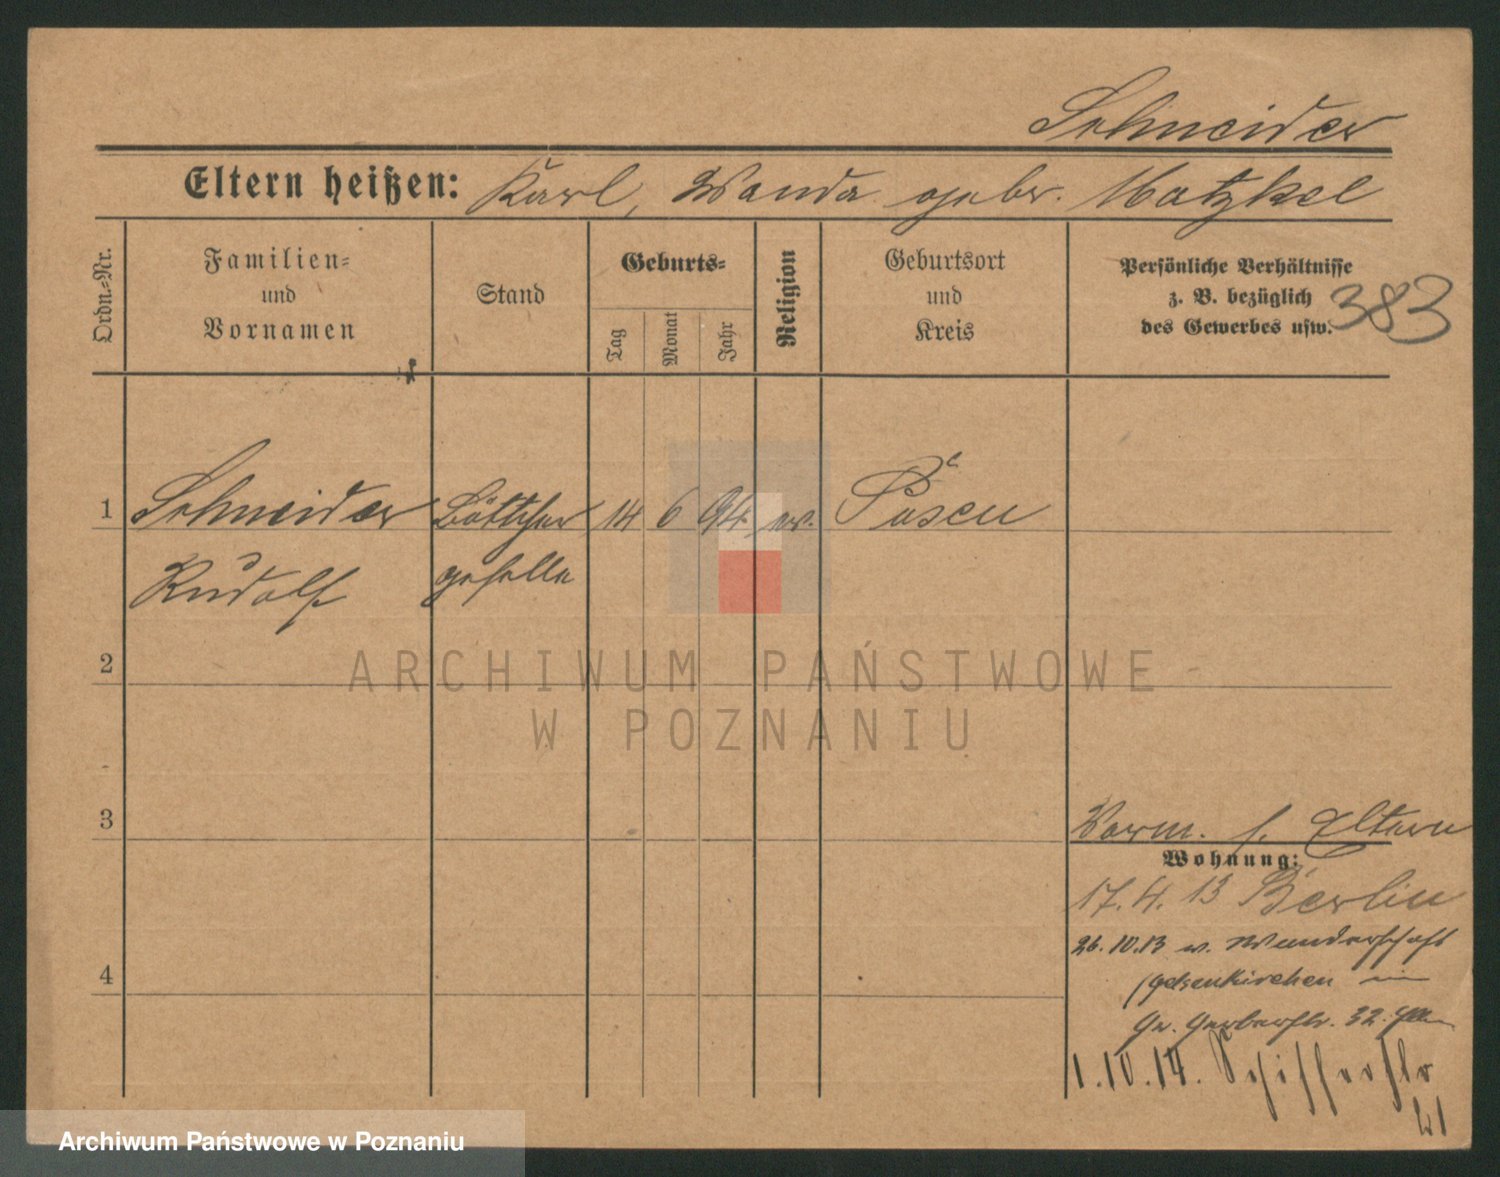 Schneider
Eltern heißen: Karl, Wanda gebr. Matzkel
Ordn.-Nr.
Familien-
und
Vornamen
Stand
Geburts-
Tag
Monat
Jahr
Religion
Geburtsort
und
Kreis
Persönliche Verhältnisse
z. B. bezüglich
des Gewerbes usw.
383
1 Schneider Böttcher 14 6 94 ev. Posen
Rudolf geselle
2
ARCHIWUM PAŃSTWOWE
W POZNANIU
3
Vorm. s. Eltern
Wohnung:
17.4.13 Berlin
26.10.13 v. Wanderschaft
(Gelsenkirchen
4
Gr. Gerberstr. 32.
1.10.14. Schifferstr
21
Archiwum Państwowe w Poznaniu